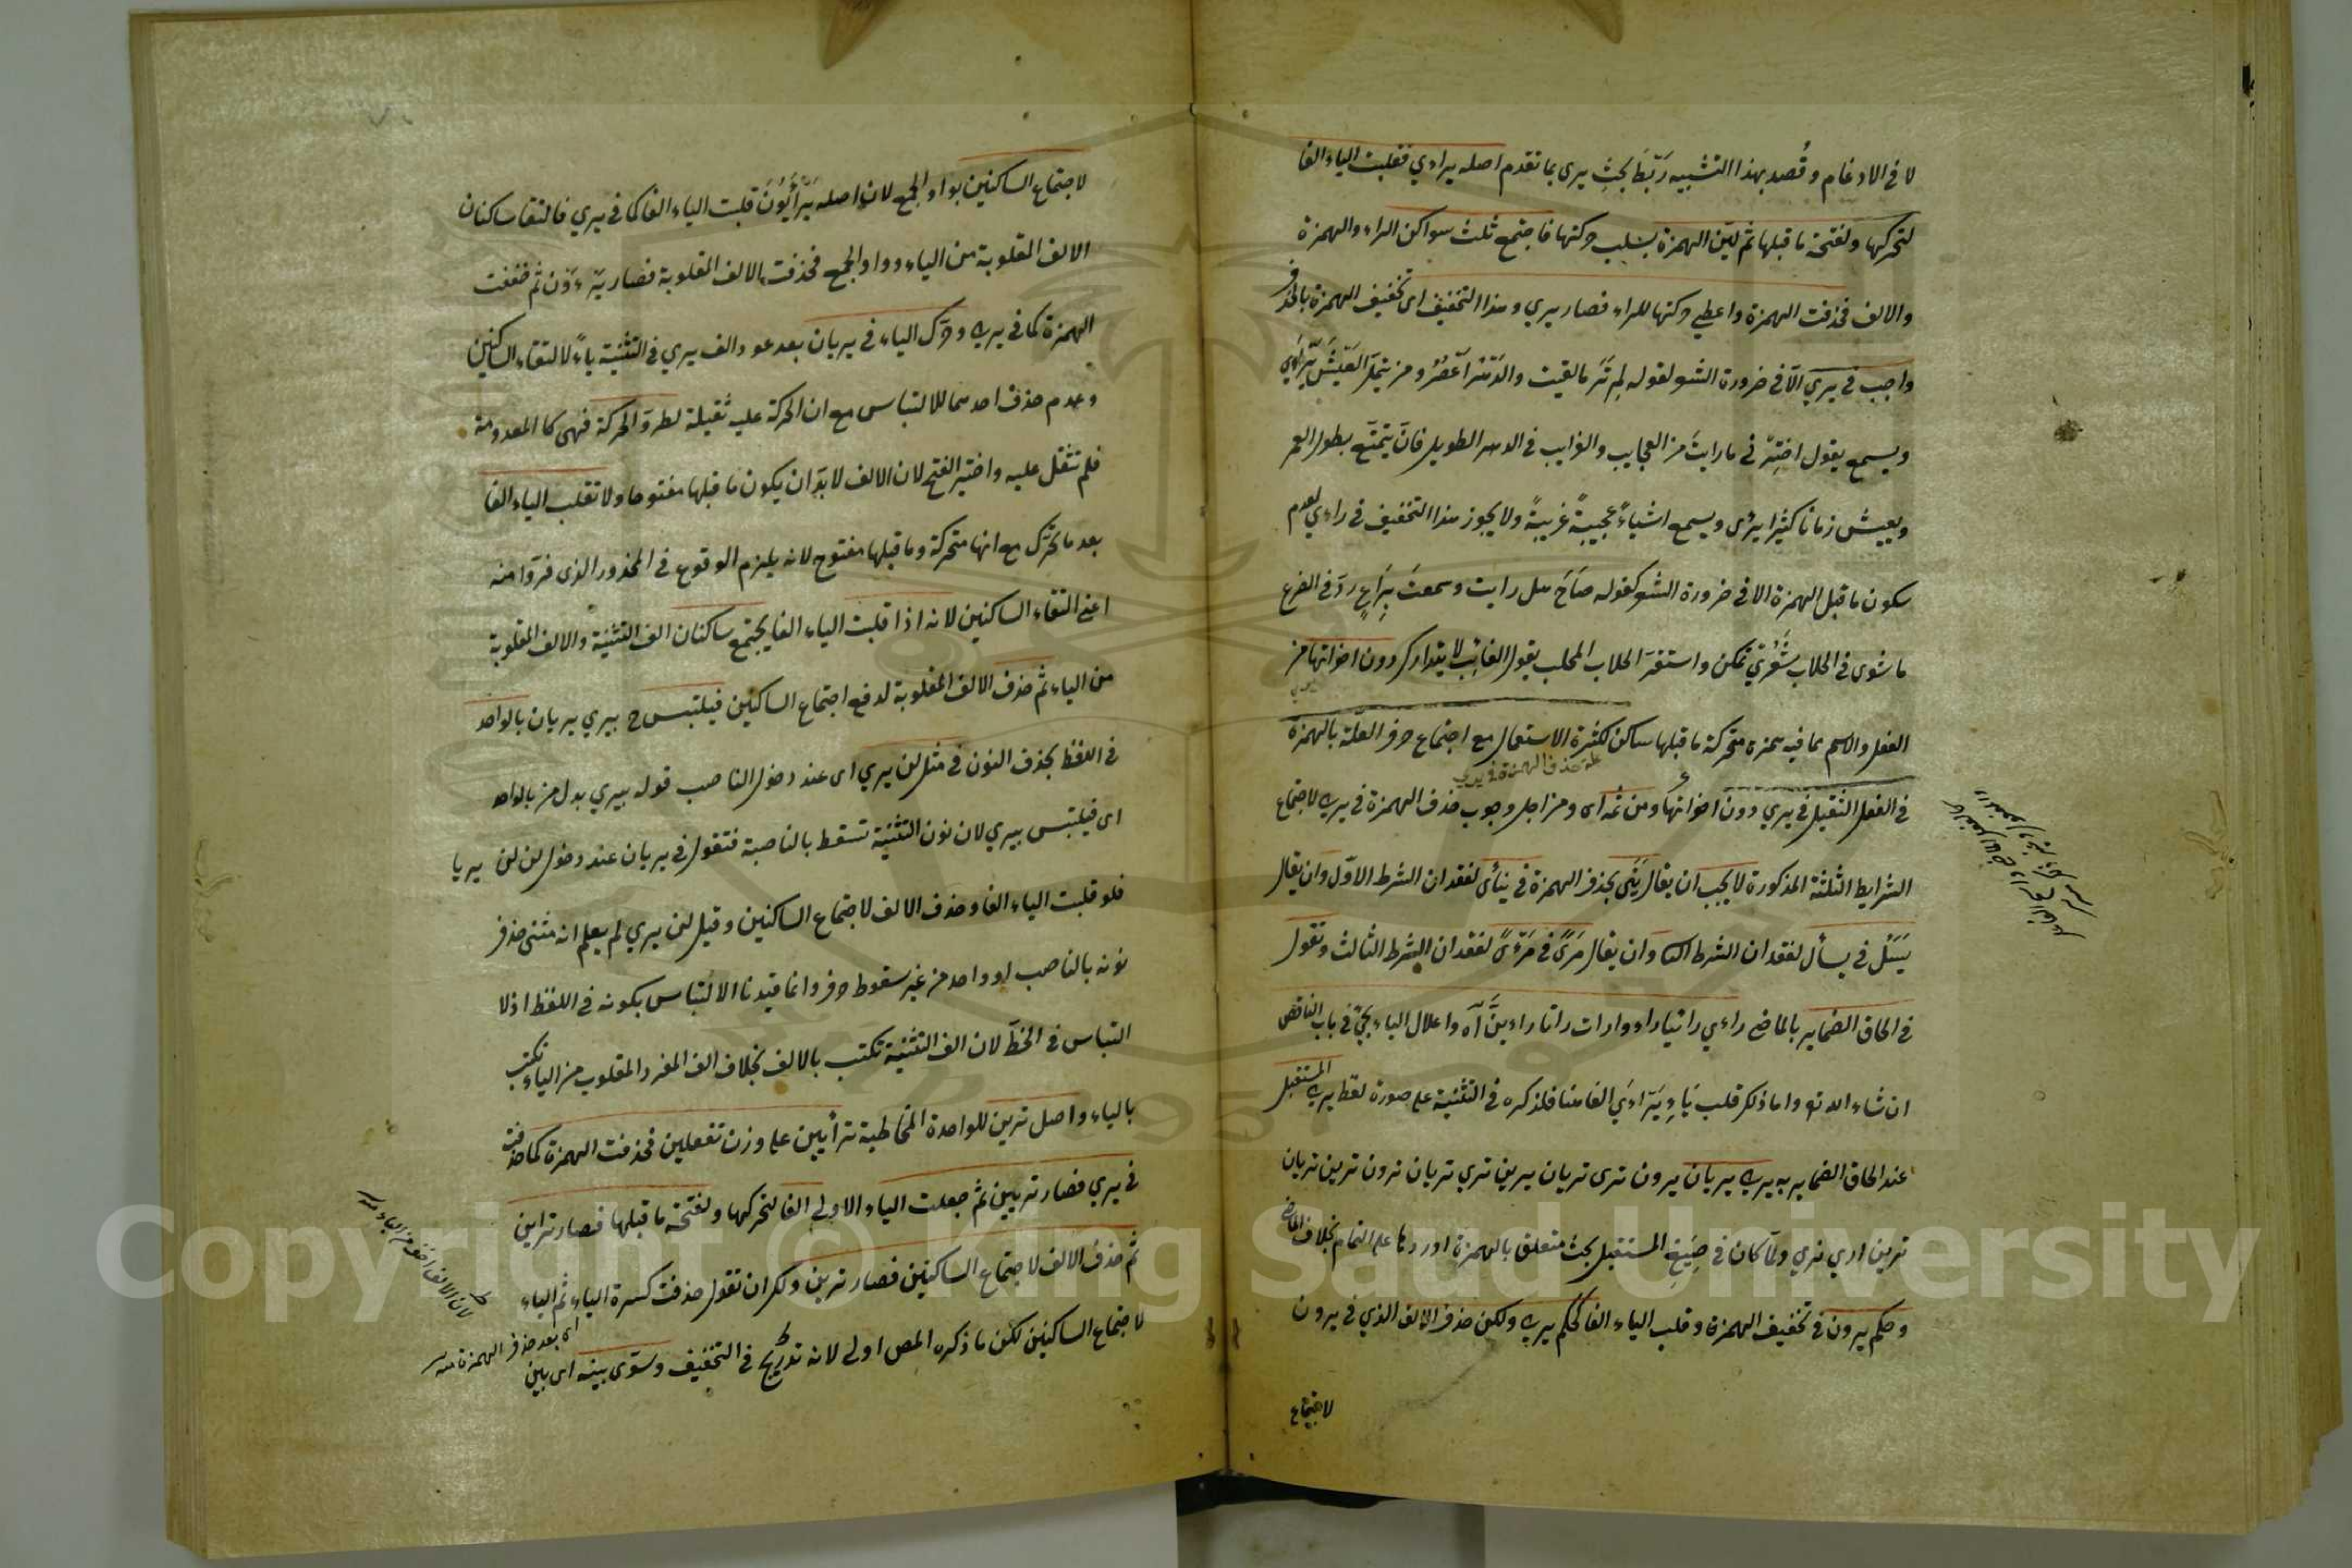 لا في الادغام و قُصد بهذا التشبيه رَبْطَ بحثِ يرى بما تقدم اصله يراءي فقلبت الياء الفا
لتحركها و لفتحة ما قبلها ثم ليّن الهمزة بسلب حركتها فاجتمع ثلث سواكن الراء والهمزة
والالف فحذفت الهمزة واعطي حركتها للراء فصار يري وهذا التخفيف اى تخفيف الهمزة بالحذف
واجب في يري الّا في ضرورة الشعر لقوله الم تَرَ ما لقيت والدَهْرُ اَعْصُرٌ و من يتملّ العَيْشَ يَرْأى
ويسمع يقول اختِبِرْ في ما رايتَ من العجايب والغرايب في الدهر الطويل فانّ يتمتّع بطول العمر
ويعيش زمانا كثيرا يرى ويسمع اشياءً عجيبةً غريبةً ولا يجوز هذا التخفيف في راءي لعدم
سكون ما قبل الهمزة الا في ضرورة الشعر كقوله صَاحَ هل رايت وسمعتَ بِرَاعٍ ردّ في الضرع
ما شوى في الحلاب تمكن واستقرّ الحلاب المحلب يقول الفائت لا يتدارك دون اخواتها من
الفعل والاسم مما فيه همزة متحركة ما قبلها ساكن لكثرة الاستعمال مع اجتماع حرف العلّة بالهمزة
علة حذف الهمزة في يري
في الفعل الثقيل في يري دون اخواتها ومن ثمه اى ومن اجل وجوب حذف الهمزة في يري لاجتماع
الشرايط الثلثة المذكورة لا يجب ان يقال يَنَى بحذف الهمزة في ينأى لفقدان الشرط الاوّل وان يقال
يَسَلُ في يسأل لفقدان الشرط الثا وان يقال مَرًى في مَرْءًى لفقدان الشرط الثالث وتقول
في الحاق الضماير بالماضي راءي رائيا راءوا رات راتا راءينَ آه واعلال الياء يجئ في باب الناقص
ان شاء الله تع واما ذكر قلب ياءِ يَرَاءَي الفا هنا فلذكره في التثنية على صورة لفظ يري المستقبل
عند الحاق الضماير به يري يريان يرون ترى تريان يرين تري تريان ترون ترين تريان
ترين اري نري ولمّا كان في صِيَغِ المستقبل بحث متعلق بالهمزة اوردها على التمام بخلاف الماضي
وحكم يرون في تخفيف الهمزة وقلب الياء الفا كحكم يري ولكن حذف الالف الذي في يرون
لاجتماع
لاجتماع الساكنين بواو الجمع لان اصله يَرْأَيُونَ قلبت الياء الفا كما في يري فالتقا ساكنان
الالف المقلوبة من الياء وواو الجمع فحذفت الالف المقلوبة فصار يَرْءَوْنَ ثم خففت
الهمزة كما في يري وحرّك الياء في يريان بعد عود الف يري في التثنية ياءً لالتقاء الساكنين
وعدم حذف احدهما للالتباس مع ان الحركة عليه ثقيلة لطروّ الحركة فهى كالمعدومة
فلم تثقل عليه واختير الفتح لان الالف لا بدّ ان يكون ما قبلها مفتوحا ولا تقلب الياء الفا
بعد ما تحرّك مع انها متحركة وما قبلها مفتوح لانه يلزم الوقوع في المحذور الذى فرّوا منه
اعني التقاء الساكنين لانه اذا قلبت الياء الفا يجتمع ساكنان الف التثنية والالف المقلوبة
من الياء ثم حذف الالف المقلوبة لدفع اجتماع الساكنين فيلتبس ح بيري يريان بالواحد
في اللفظ بحذف النون في مثل لن يري اى عند دخول الناصب قوله بيري بدل من بالواحد
اى فيلتبس بيري لان نون التثنية تسقط بالناصبة فتقول في يريان عند دخول لن لن يريا
فلو قلبت الياء الفا وحذف الالف لاجتماع الساكنين وقيل لن يري لم يعلم انه مثنى حذف
نونه بالناصب او واحد من غير سقوط حرف وانما قيدنا الالتباس بكونه في اللفظ اذ لا
التباس في الخطّ لان الف التثنية تكتب بالالف بخلاف الف المفرد المقلوب من الياء تكتب
بالياء واصل ترين للواحدة المخاطبة ترأيين على وزن تفعلين فحذفت الهمزة كما حذفت
في يري فصار تريين ثم جعلت الياء الاولي الفا لتحركها ولفتحة ما قبلها فصار تراين
ثم حذف الالف لاجتماع الساكنين فصار ترين ولك ان تقول حذفت كسرة الياء ثم الياء
لاجتماع الساكنين لكن ما ذكره المص اولي لانه تدريج في التخفيف وسوّى بينه اى بين
لان الالف اخف من الياء منه
اى بعد حذف الهمزة منه
Copyright © King Saud University
1957